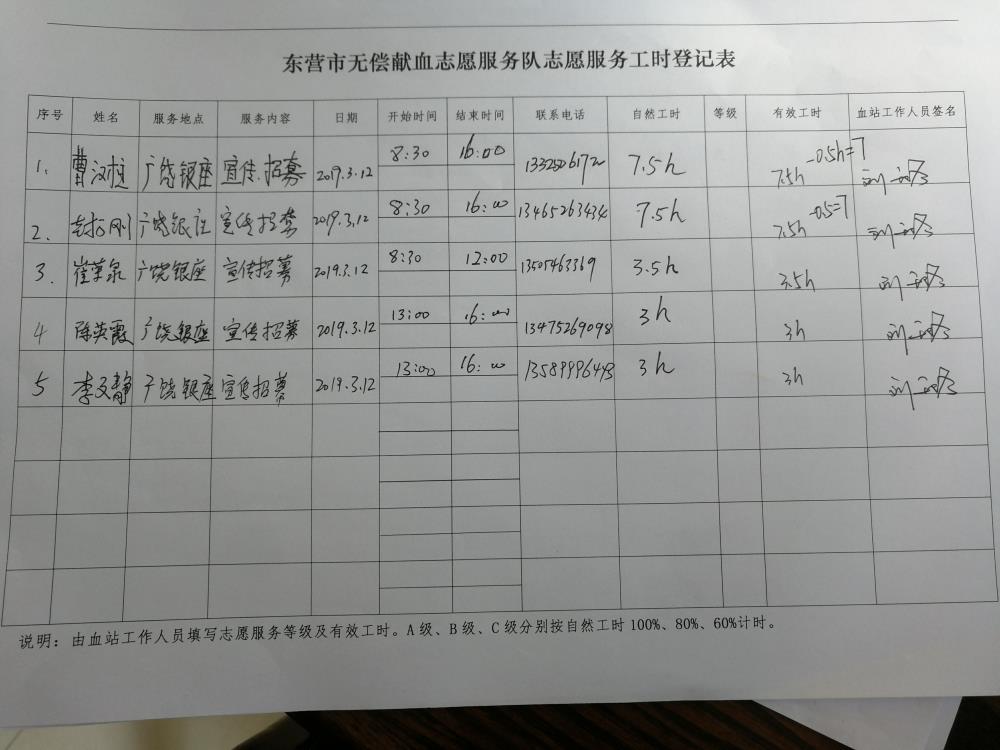 东营市无偿献血志愿服务队志愿服务工时登记表
序号 姓名 服务地点 服务内容 日期 开始时间 结束时间 联系电话 自然工时 等级 有效工时 血站工作人员签名
1. 曹汉柱 广饶银座 宣传.招募 2019.3.12 8:30 16:00 7.5h 7.5h -0.5h=7
2. 刚 广饶银座 宣传招募 2019.3.12 8:30 16:00 13465263434 7.5h 7.5h -0.5=7
3. 崔 泉 广饶银座 宣传招募 2019.3.12 8:30 12:00 13505463369 3.5h 3.5h
4 陈英霞 广饶银座 宣传招募 2019.3.12 13:00 16:00 13475269098 3h 3h
5 李文静 广饶银座 宣传招募 2019.3.12 13:00 16:00 3h 3h
说明：由血站工作人员填写志愿服务等级及有效工时。A 级、B 级、C 级分别按自然工时 100%、80%、60%计时。